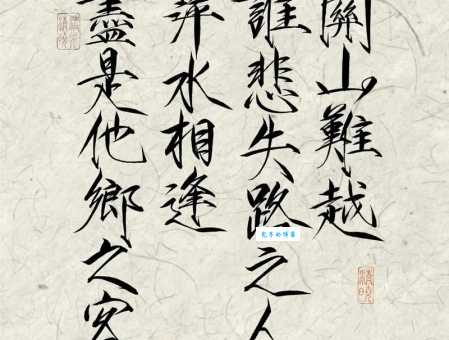 關山難越
誰悲失路之人
萍水相逢
盡是他鄉之客